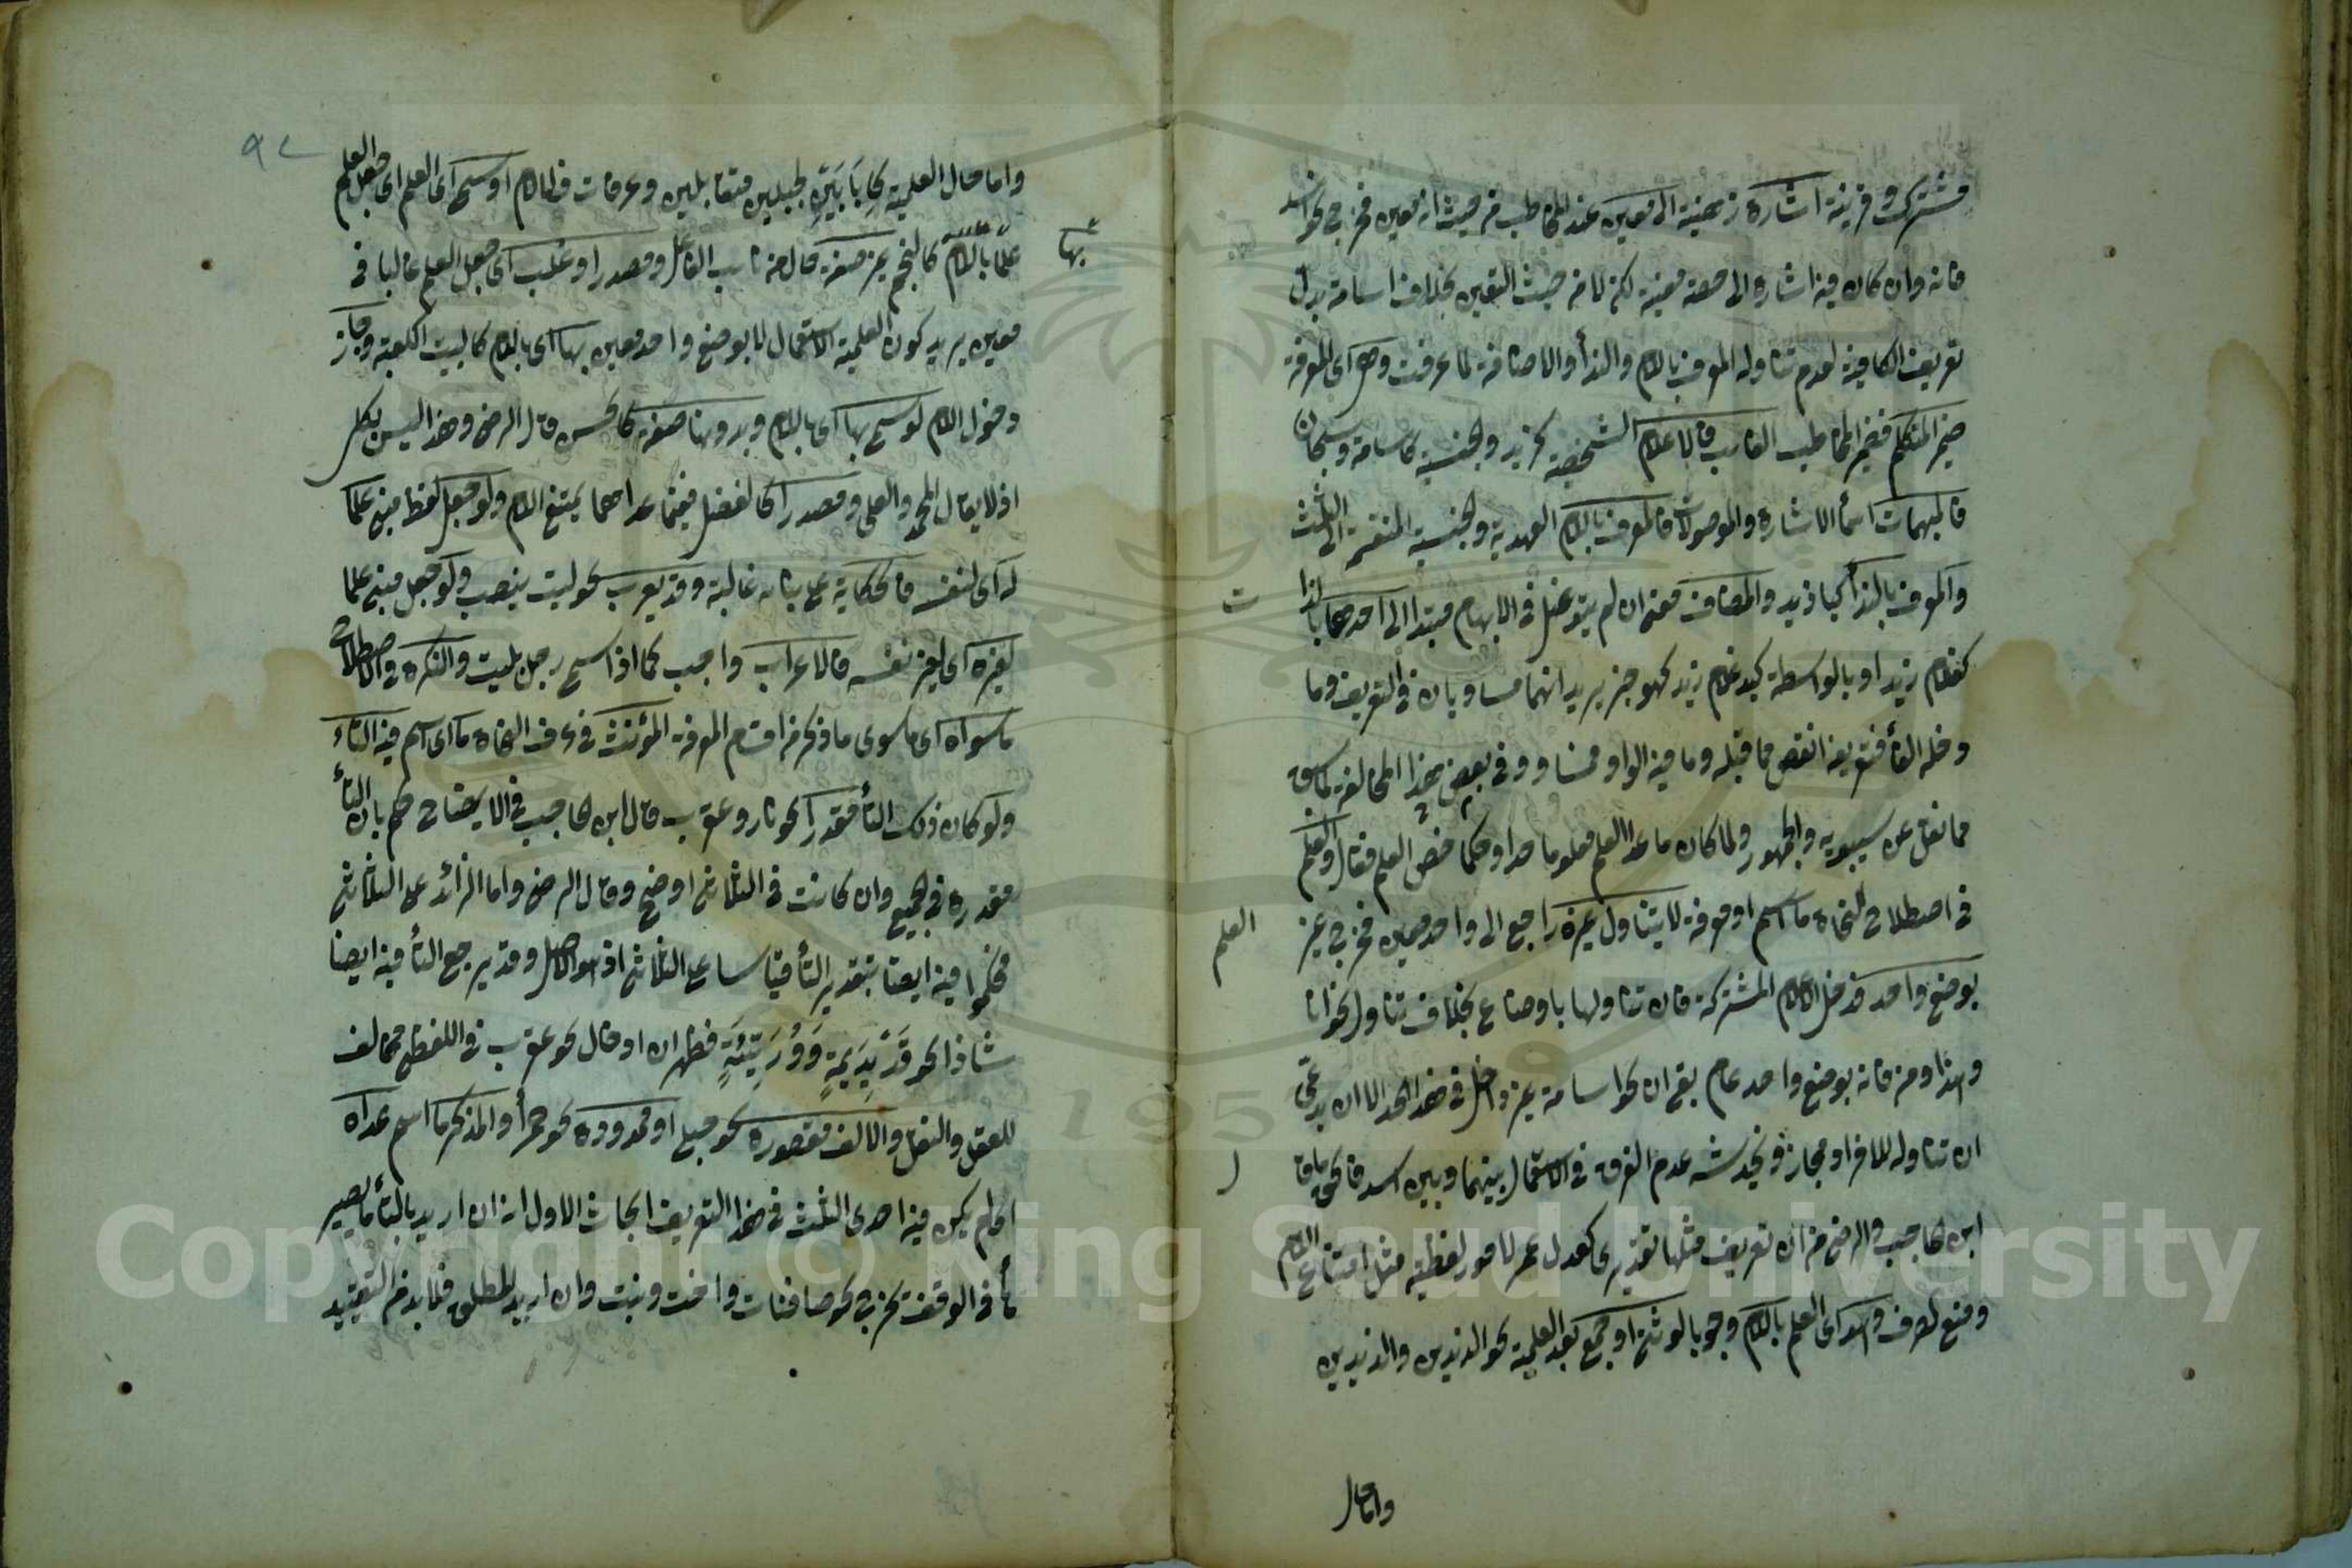 مشترك وقرينة اشارة ذهنية الى معين عند المخاطب من حيث انه معين فخرج نحو اسد
فانه وان كان فيه اشارة الى حصة معينة لكن لا من حيث التعين بخلاف اسامة بدل
تعريف الكافية لعدم تناوله المعرف باللام والندأ والاضافة لما عرفت وهى اى المعرفة
ضمير المتكلم فضمير المخاطب الغائب فالاعلام الشخصية كزيد والجنسية كاسامة وسبحان
فالمبهمات اسمأ الاشارة والموصولات فالمعرف باللام العهدية والجنسية المنقسمة الى الثلث
والمعرف بالندأ كيا زيد والمضاف معنى ان لم يتوغل فى الابهام مبتدا الى احدها بالذات
كغلام زيد او بالواسطة كيد غلام زيد كهو خبر يريد انهما مساويان فى التعريف وما
دخله الفأ فتعريفه انقص مما قبله وما فيه الواو فمساو وفى بعض هذا المخالفة لما سبق
مما نقل عن سيبويه والجمهور ولما كان ما عدا العلم معلوما حدا وحكما خص العلم فقال والعلم
فى اصطلاح النحاة ما اسم او معرفة لا يتناول غيره راجع الى واحد معين فخرج غير العلم
بوضع واحد فدخل الاعلام المشتركة فان تناولها باوضاع بخلاف تناول نحو انا
وهذا ومن فانه بوضع واحد عام بقى ان نحو اسامة غير داخل فى هذا الحد الا ان يدعى
ان تناوله للافراد مجاز ويخدشه عدم الفرق فى الاستعمال بينهما وبين اسد فالحق ما قال
ابن الحاجب والرضى من ان تعريف مثلها تقديرى كعدل عمر لامور لفظية مثل امتناع اللام
ومنع الصرف وهو اى العلم باللام وجوبا لو ثنى او جمع بعد العلمية نحو الزيدين والزيدين
واما حال
٩٧
واما حال العلمية كابانين لجبلين متقابلين وعرفات فلا لام او سمى اى العلم اى جعل العلم
علما باللام كالنجم بها غير صفة حال من نائب الفاعل ومصدر او غلب اى جعل العلم غالبا فى
معين يريد كون العلمية الاستعمال لا بوضع واحد معين بها اى باللام كالبيت الكعبة وجاز
دخول اللام لو سمى بها اى باللام وبدونها صفة كالحسن قال الرضى وهذا ليس بكلى
اذ لا يقال المحمد والعلى ومصدرا كالفضل ففيما عداهما يمتنع اللام ولو جعل لفظ مبنى علما
له اى لنفسه فالحكاية على بنائه غالبة وقد يعرب نحو ليت ينصب ولو جعل مبنى علما
لغيره اى لغير نفسه فالاعراب واجب كما اذا سمى رجل بليت والنكرة فى الاصطلاح
ما سواه اى ما سوى ما ذكر من اقسام المعرفة المؤنث فى عرف النحاة ما اى اسم فيه التاء
ولو كان ذلك التأ مقدرا نحو نار وعقرب قال ابن الحاجب فى الايضاح حكم بان التأ
مقدرة فى الجميع وان كانت فى الثلاثى اوضح وقال الرضى واما الزائد على الثلاثى
فحكموا فيه ايضا بتقدير التأ قياسا على الثلاثى اذ هو الاصل وقد يرجع التأ فيه ايضا
شاذا نحو قديديمة ووريئة فظهر ان ادخال نحو عقرب فى اللفظى مخالف
للعقل والنقل والالف مقصورة نحو حبلى او ممدودة نحو حمرأ والمذكر ما اسم عداه
اى لم يكن فيه احدى الثلث فى هذا التعريف ابحاث الاول انه ان اريد بالتأ ما يصير
هأ فى الوقف تخرج نحو صافنات واخت وبنت وان اريد المطلق فلا بد من التقييد